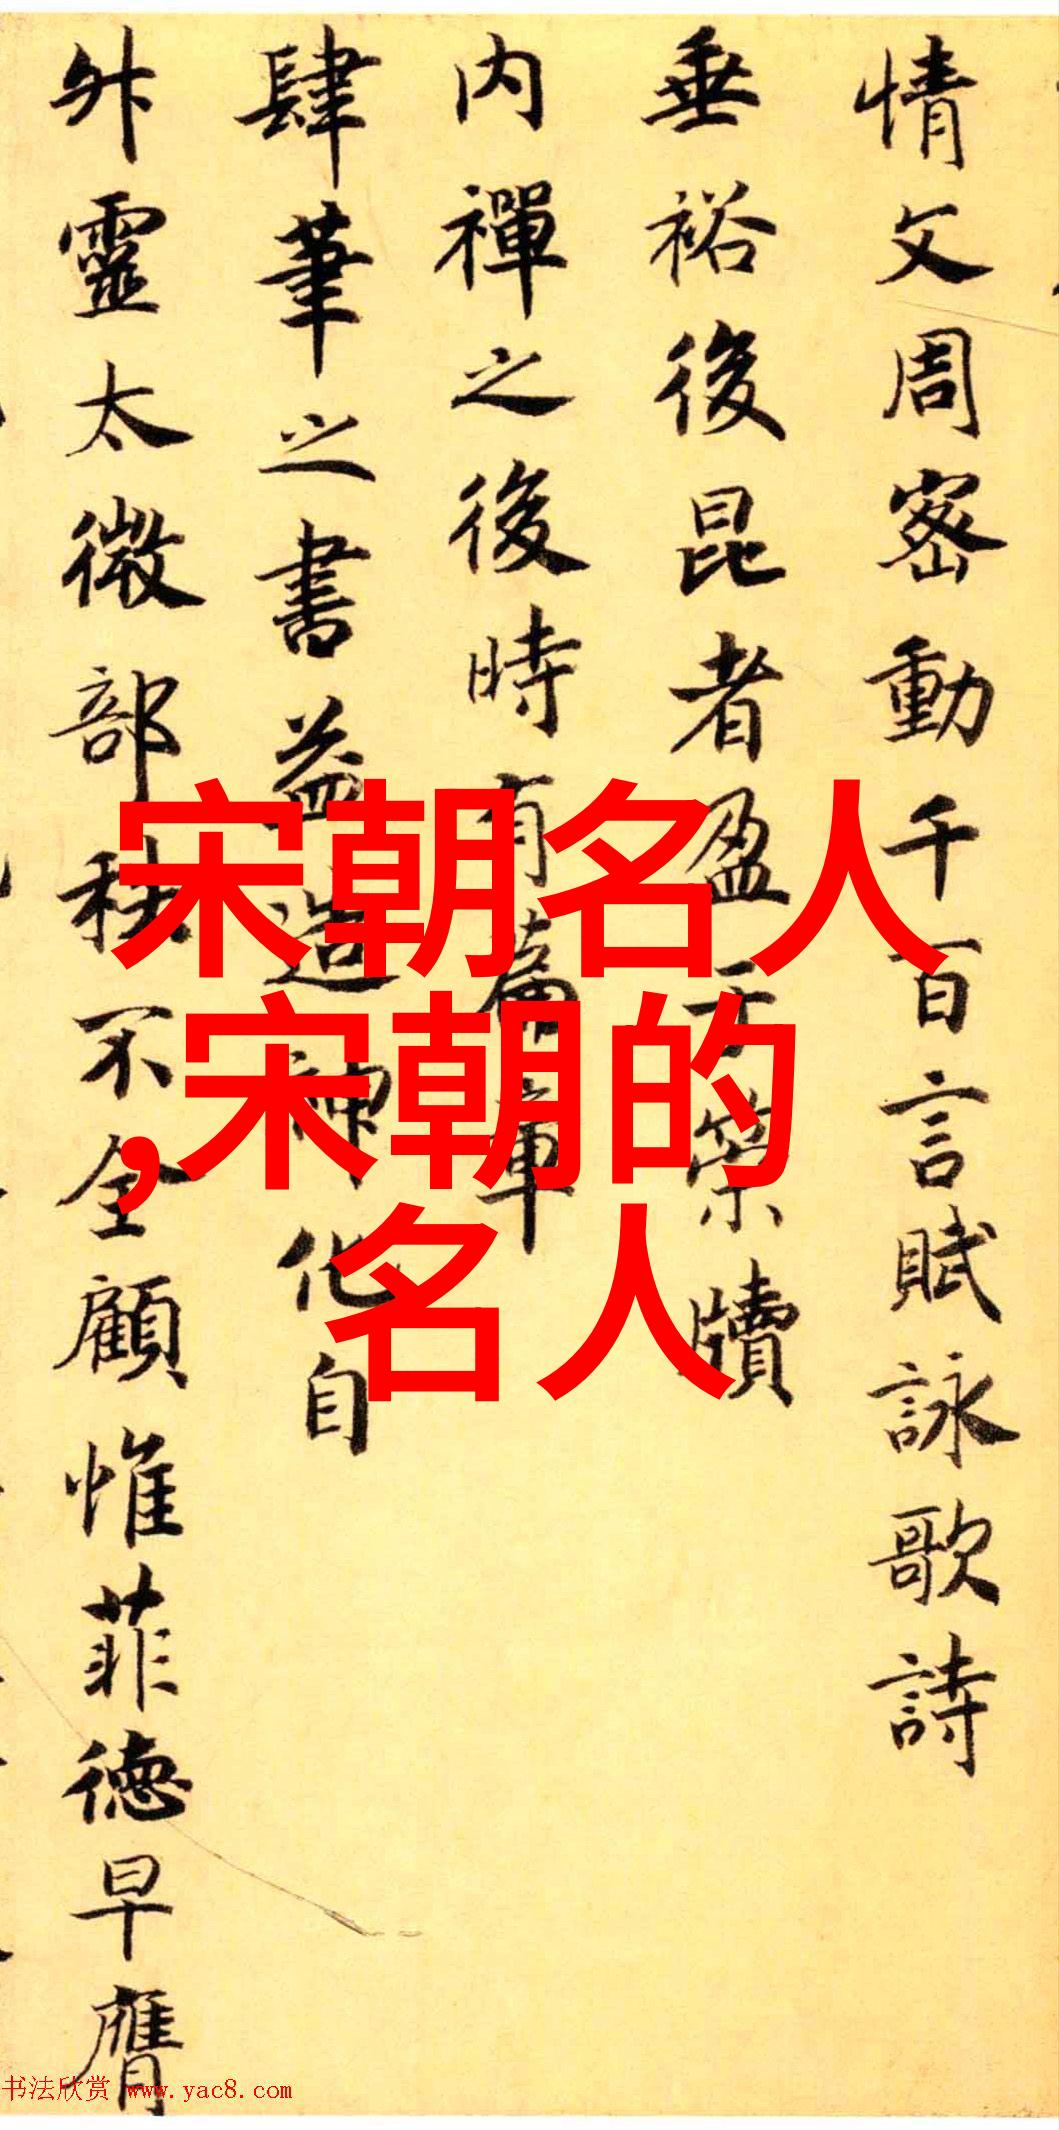 情文周密動千百言賦詠歌詩
垂裕後昆者盈于篋牘
内禪之後時有篇章
肆筆之書益造神化自
升靈太微部秩不全顧惟菲德早膺
宋朝名人
,宋朝的
名人
书法欣赏 www.yac8.com